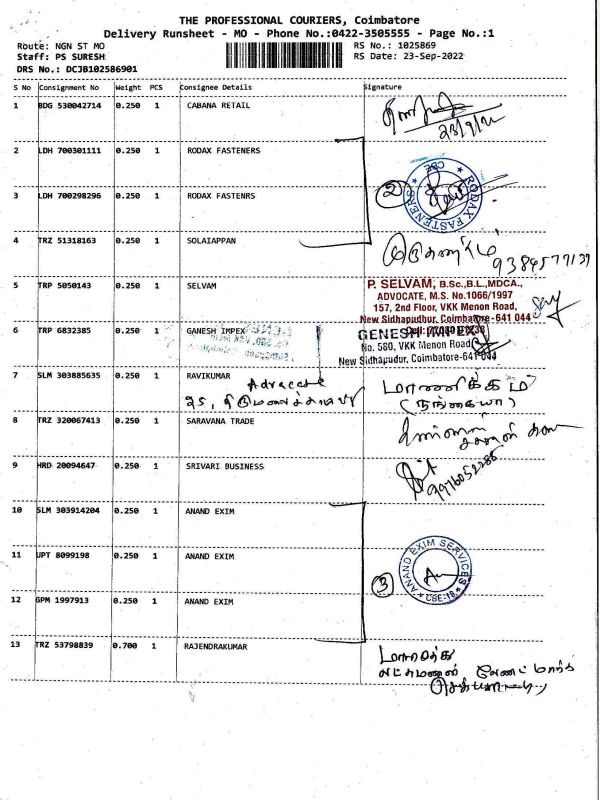 THE PROFESSIONAL COURIERS, Coimbatore
Delivery Runsheet - MO - Phone No.:0422-3505555 - Page No.:1
Route: NGN ST MO
RS No.: 1025869
Staff: PS SURESH
RS Date: 23-Sep-2022
DRS No.: DCJB102586901
S No Consignment No Weight PCS Consignee Details Signature
1 BDG 530042714 0.250 1 CABANA RETAIL
23/9/22
2 LDH 700301111 0.250 1 RODAX FASTENERS
3 LDH 700298296 0.250 1 RODAX FASTENRS
2
RODAX FASTENERS
CBE
4 TRZ 51318163 0.250 1 SOLAIAPPAN
5 TRP 5050143 0.250 1 SELVAM
P. SELVAM, B.Sc.,B.L.,MDCA.,
ADVOCATE, M.S. No.1066/1997
157, 2nd Floor, VKK Menon Road,
New Sidhapudhur, Coimbatore-641 044
6 TRP 6832385 0.250 1 GANESH IMPEX
GENESH IMPEX
No. 580, VKK Menon Road
New Sidhapudur, Coimbatore-641 044
7 SLM 303885635 0.250 1 RAVIKUMAR
Advocate
மாணிக்கம்
8 TRZ 320067413 0.250 1 SARAVANA TRADE
9 HRD 20094647 0.250 1 SRIVARI BUSINESS
10 SLM 303914204 0.250 1 ANAND EXIM
11 UPT 8099198 0.250 1 ANAND EXIM
3
ANAND EXIM SERVICES
CBE-18
12 GPM 1997913 0.250 1 ANAND EXIM
13 TRZ 53798839 0.700 1 RAJENDRAKUMAR